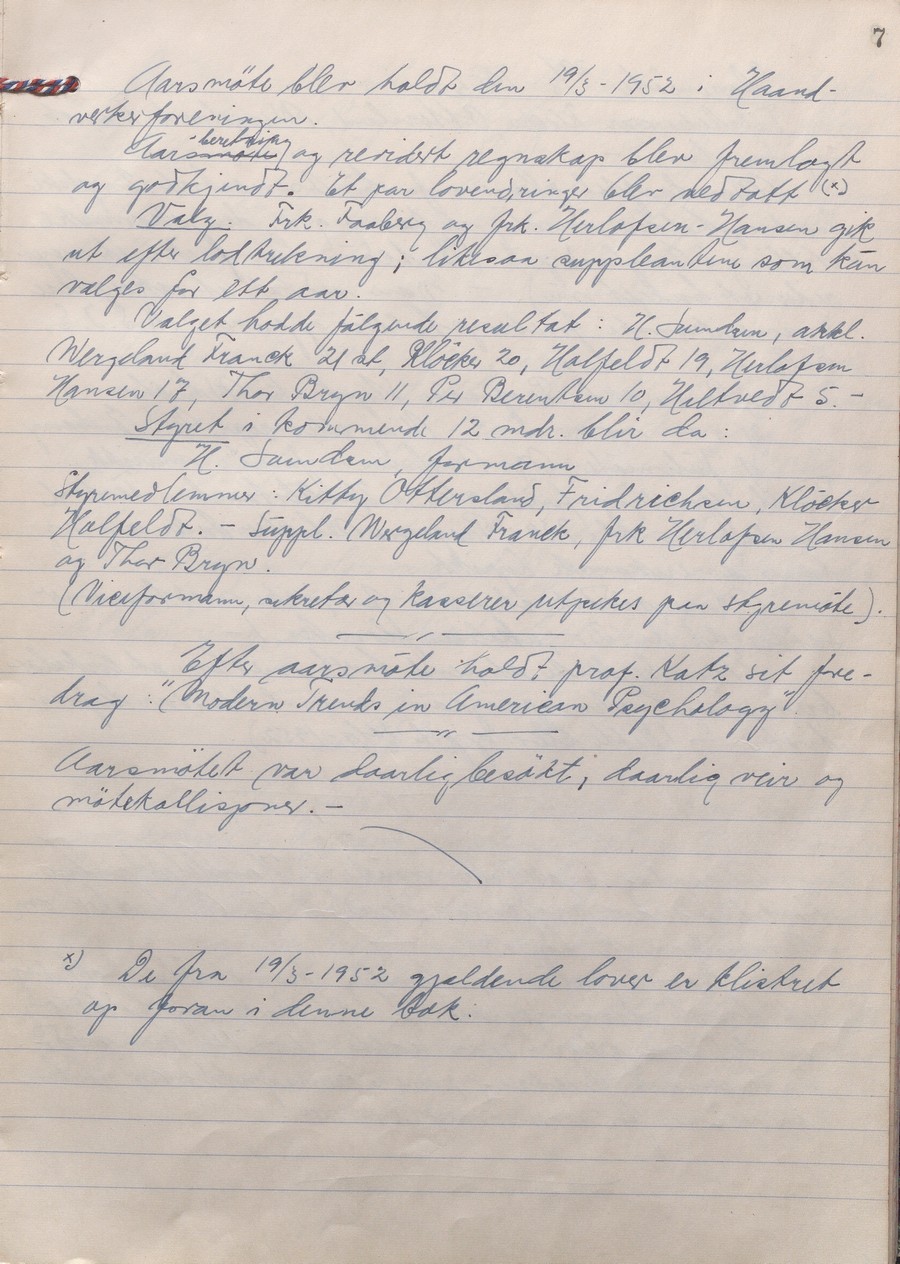 7
Aarsmöte blev holdt den 19/3 - 1952 i Haand-
verkerforeningen.
Aarsberetning og revidert regnskap blev fremlagt
og godkjendt. Et par lovendringer blev vedtatt (x)
Valg. Frk. Faaberg og frk. Herlofsen-Hansen gik
ut efter lodtrekning; likesaa suppleantene som kun
velges for ett aar.
Valget hadde følgende resultat: H. Sundsen, akkl.
Wergeland Franck 21 st, Klöcker 20, Holfeldt 19, Herlofsen
Hansen 17, Thor Bryn 11, Per Berentsen 10, Holtvedt 5. -
Styret i kommende 12 mdr. blir da:
H. Sundsen, formann
Styremedlemmer: Kitty Ottersland, Fridrichsen, Klöcker
Holfeldt. - Suppl. Wergeland Franck, frk Herlofsen Hansen
og Thor Bryn.
(Viceformann, sekretær og kasserer utpekes paa styremöte).
Efter aarsmöte holdt prof. Katz sit fore-
drag: "Modern Trends in American Psychology".
Aarsmötet var daarlig besökt; daarlig veir og
mötekollisjoner. -
x) De fra 19/3 - 1952 gjeldende lover er klistret
op foran i denne bok.